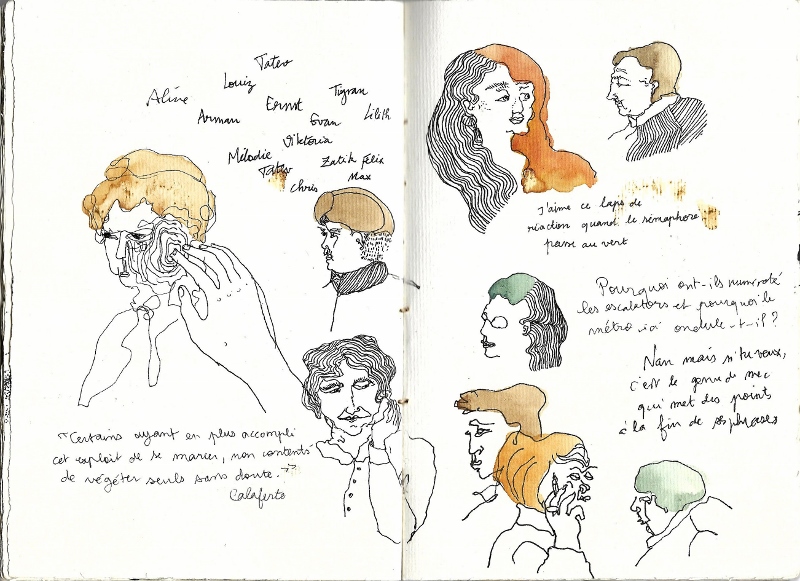 Tatev
Louiz
Aline
Ernst
Tigran
Arman
Evan
Lilith
Viktoria
Mélodie
Zatik Félix
Tatev
Chris
Max
"Certains ayant en plus accompli
cet exploit de se marier, non contents
de végéter seuls sans doute."
Calaferte
J'aime ce laps de
réaction quand le sémaphore
passe au vert
Pourquoi ont-ils numéroté
les escalators et pourquoi le
métro ici ondule-t-il ?
Nan mais si tu veux,
c'est le genre de mec
qui met des points
à la fin de ses phrases